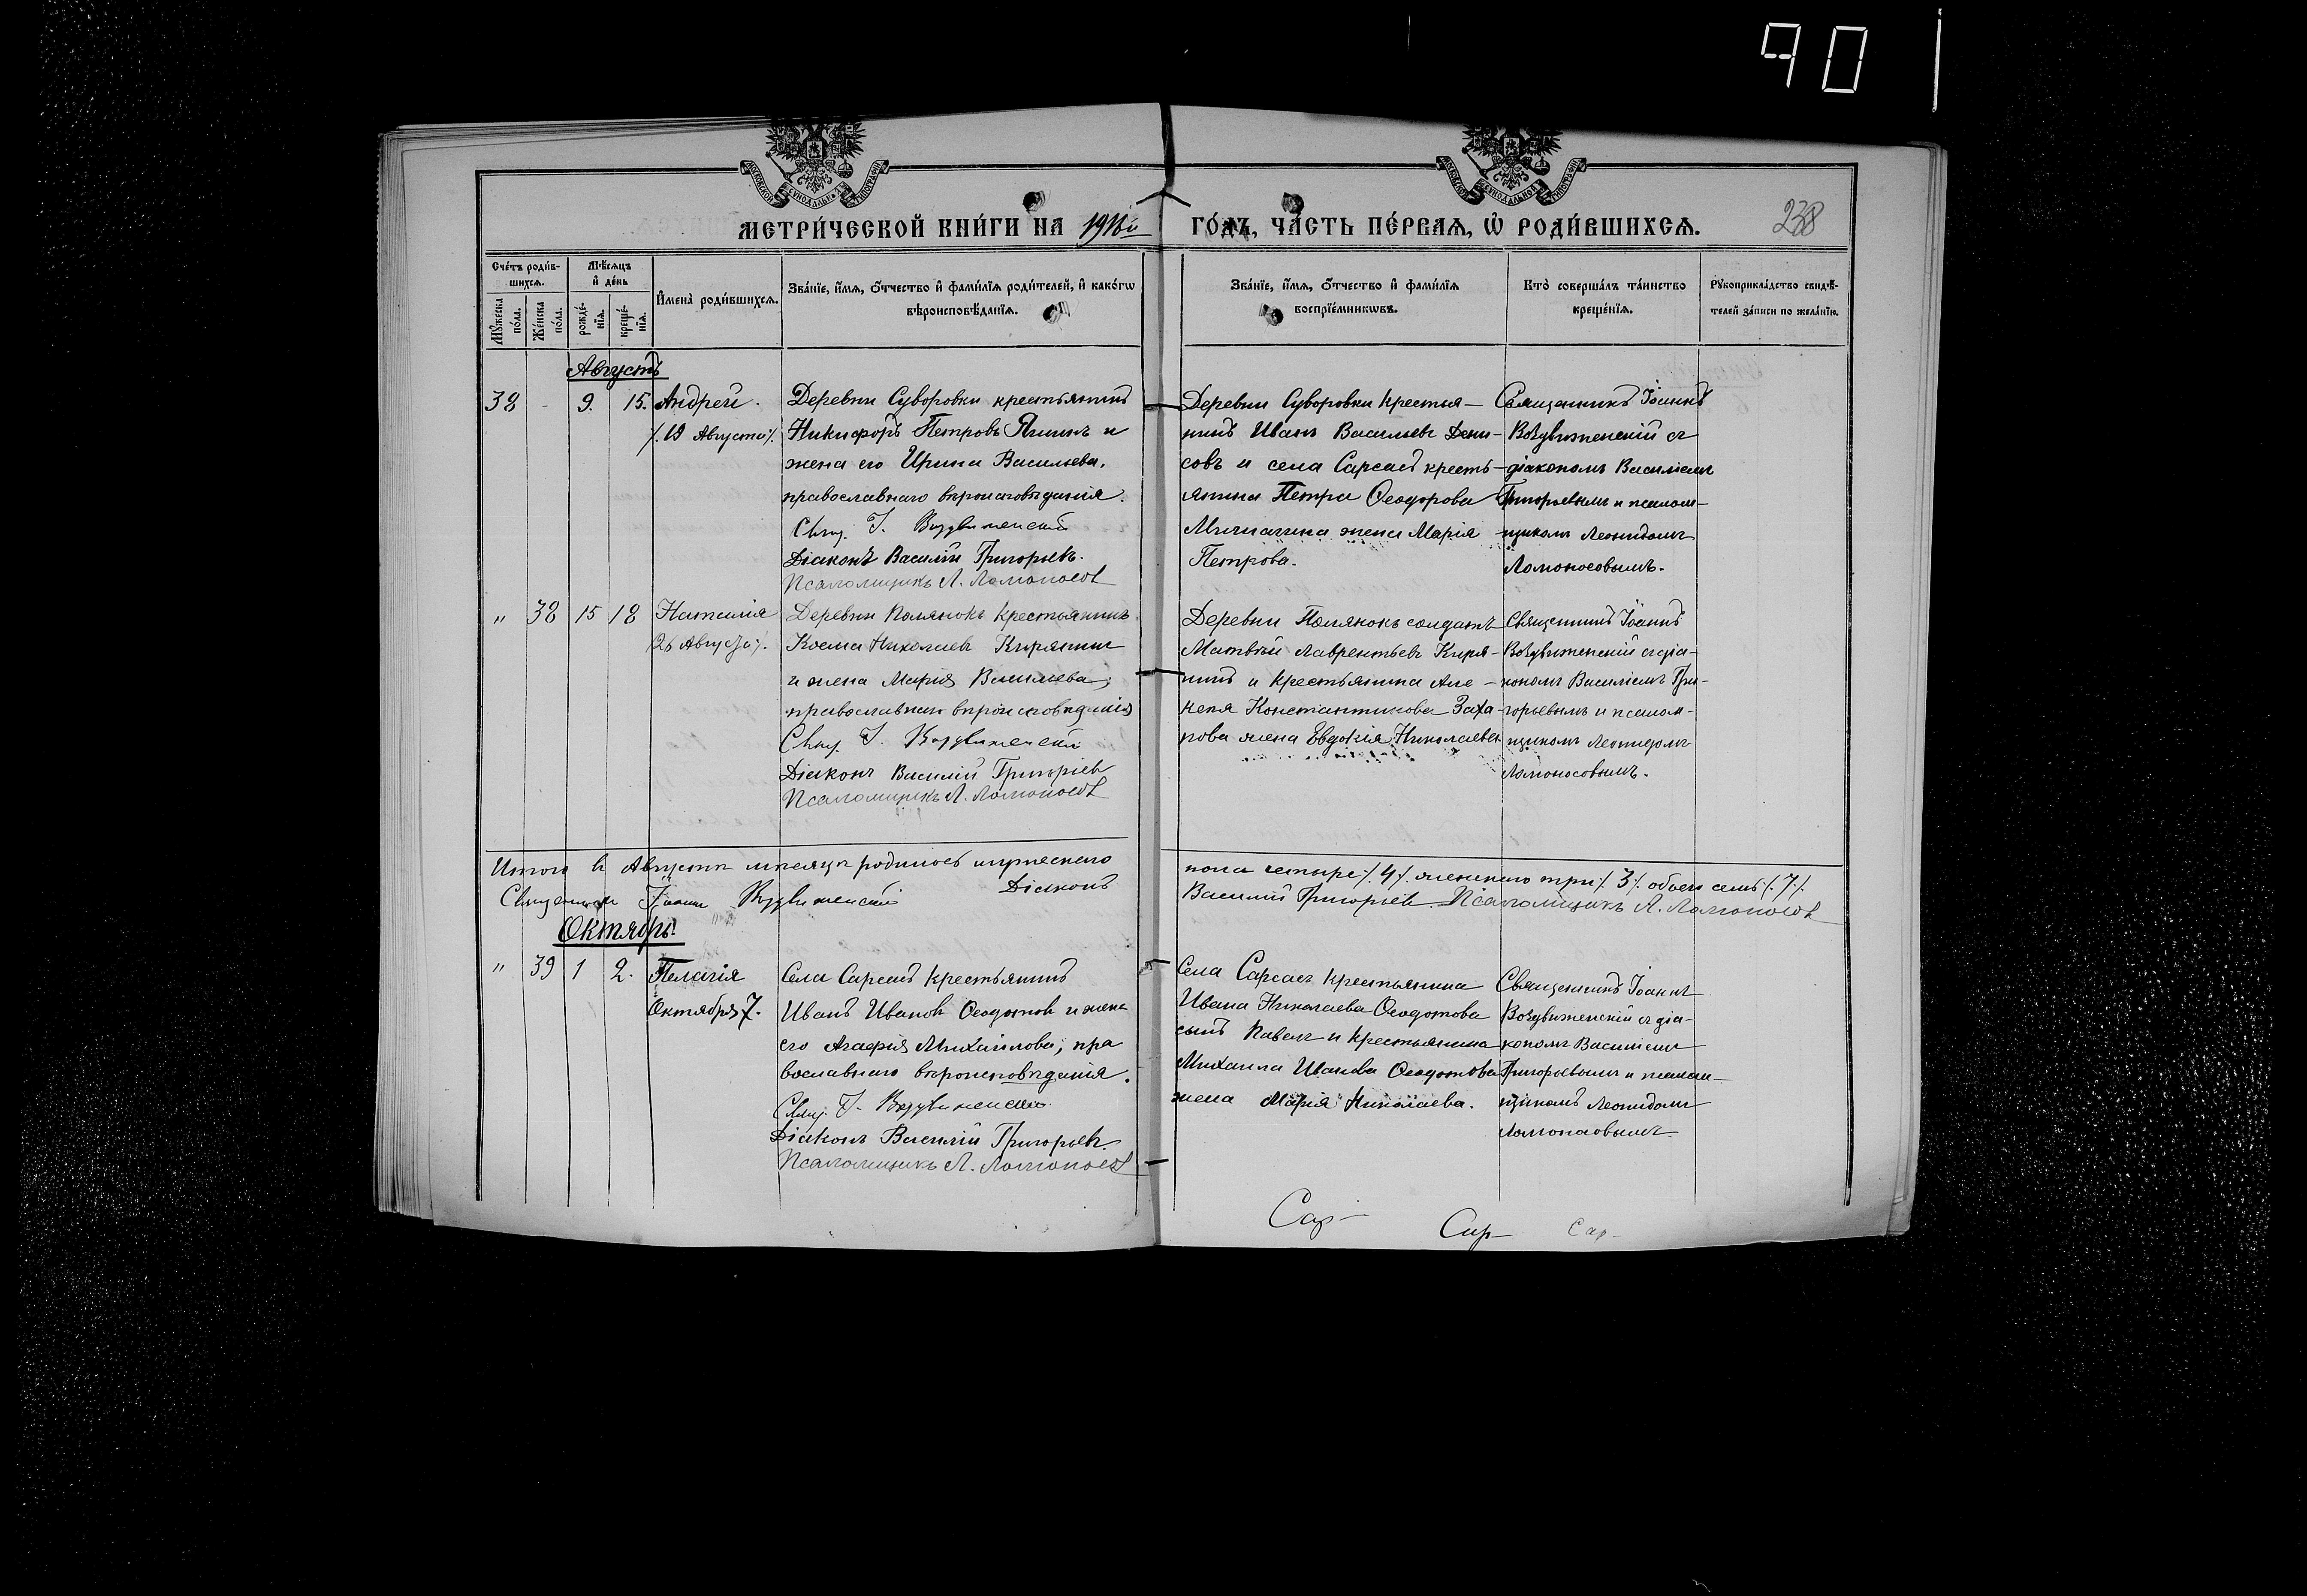 90
МЕТРИ́ЧЕСКОЙ КНИ́ГИ НА 1916й ГО́ДЪ, ЧА́СТЬ ПЕ́РВАѦ, Ѡ҆ РОДИ́ВШИХСѦ.
238
Сче́тъ роди́в-
шихсѧ.
Мѣ́сѧцъ
и҆ де́нь
Мꙋ́жеска
по́ла.
Же́нска
по́ла.
рожде́-
нїѧ.
креще́-
нїѧ.
И҆мена̀ роди́вшихсѧ.
Зва́нїе, и҆́мѧ, ѻ҆́тчество и҆ фами́лїѧ роди́телей, и҆ како́гѡ
вѣроисповѣ́данїѧ.
Зва́нїе, и҆́мѧ, ѻ҆́тчество и҆ фами́лїѧ
воспрїе́мникѡвъ.
Кто̀ соверша́лъ та́инство
креще́нїѧ.
Рꙋкоприкла́дство свидѣ́-
телей за́писи по жела́нїю.
Августъ
38 - 9. 15. Андрей.
/. 19 Августа /.
Деревни Суворовки крестьянинъ
Никифоръ Петровъ Яшинъ и
жена его Ирина Васильева,
православнаго вѣроисповѣданія.
Свящ. І. Воздвиженскій
Діаконъ Василій Григорьевъ.
Псаломщикъ Л. Ломоносовъ
Деревни Суворовки крестья-
нинъ Иванъ Васильевъ Дени-
совъ и села Сарсасъ кресть-
янина Петра Ѳеодорова
жена Марія
Петрова.
Священникъ Іоаннъ
Воздвиженскій съ
діакономъ Василіемъ
Григорьевымъ и псалом-
щикомъ Леонидомъ
Ломоносовымъ.
" 38 15 18 Наталія
26 Августа /.
Деревни Полянокъ крестьянинъ
Косма Николаевъ Кирянинъ
и жена Марія Васильева,
православнаго вѣроисповѣданія
Свящ. І. Воздвиженскій
Діаконъ Василій Григорьевъ
Псаломщикъ Л. Ломоносовъ
Деревни Полянокъ солдатъ
Матвѣй Лаврентьевъ Киря-
нинъ и крестьянина Але-
ксѣя Константинова Заха-
рова жена Евдокія Николаева
Священникъ Іоаннъ
Воздвиженскій съ діа-
кономъ Василіемъ Гри-
горьевымъ и псалом-
щикомъ Леонидомъ
Ломоносовымъ.
Итого въ Августѣ мѣсяцѣ родилось мужескаго пола четыре /. 4 /. женскаго три /. 3 /. обоего семь /. 7 /.
Священникъ Іоаннъ Воздвиженскій Діаконъ Василій Григорьевъ Псаломщикъ Л. Ломоносовъ
Октябрь.
" 39 1 2. Пелагія
Октября 7.
Села Сарсасъ крестьянинъ
Иванъ Ивановъ Ѳеодотовъ и жена
его Агафія Михайлова; пра
вославнаго вѣроисповѣданія.
Свящ. І. Воздвиженскій
Діаконъ Василій Григорьевъ.
Псаломщикъ Л. Ломоносовъ
Села Сарсасъ крестьянина
Ивана Николаева Ѳеодотова
сынъ Павелъ и крестьянина
Михаила Иванова Ѳеодотова
жена Марія Николаева.
Священникъ Іоаннъ
Воздвиженскій съ діа-
кономъ Василіемъ
Григорьевымъ и псалом-
щикомъ Леонидомъ
Ломоносовымъ.
Сар- Сар- Сар-